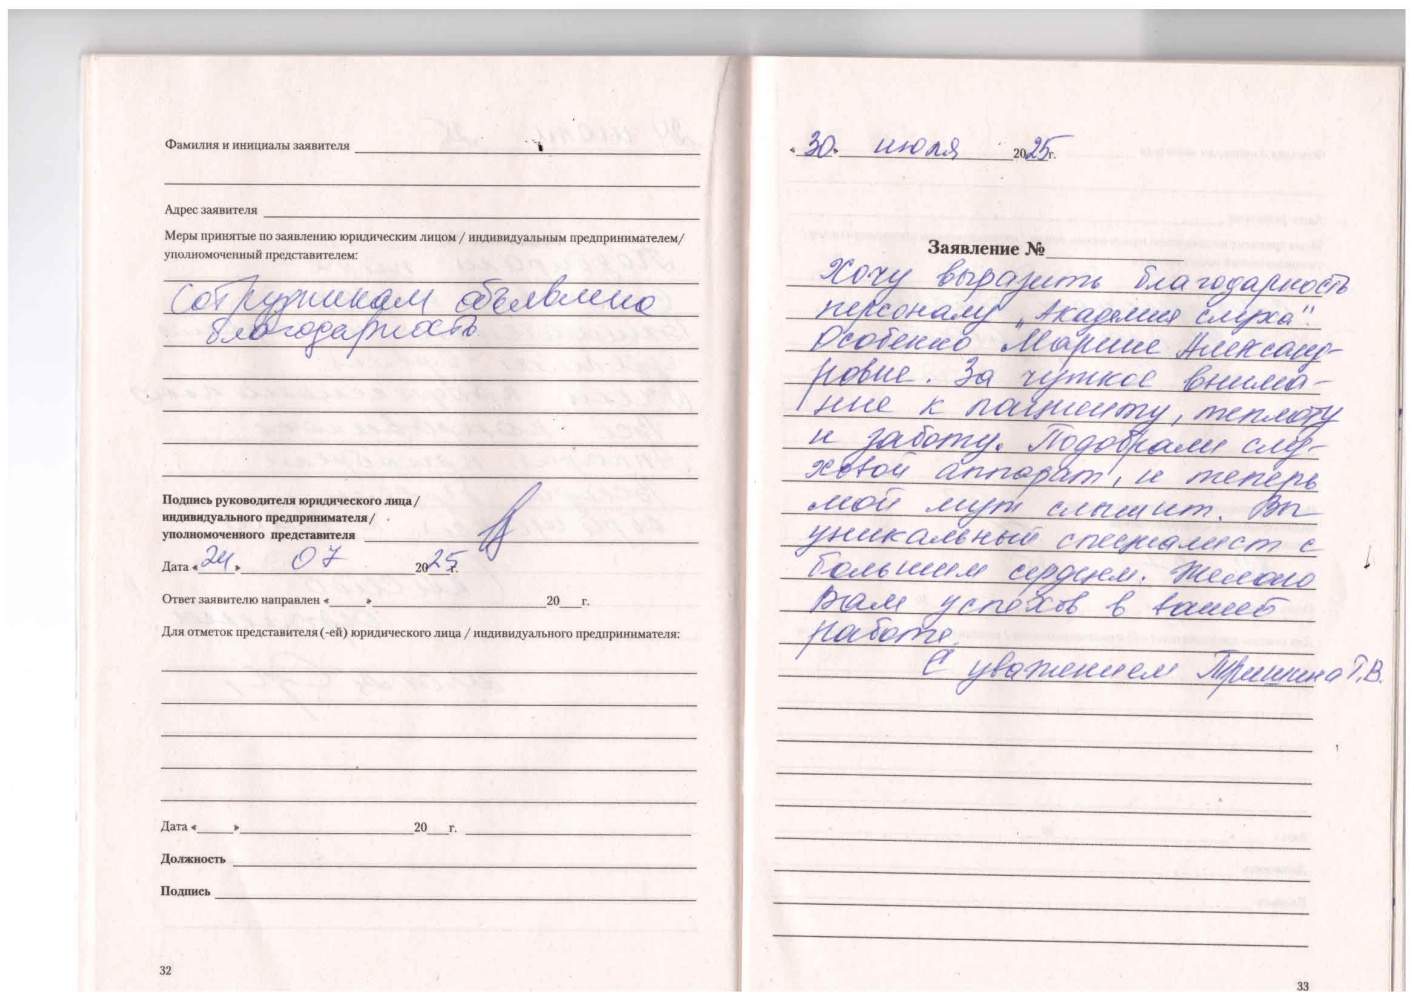 Фамилия и инициалы заявителя
Адрес заявителя
Меры принятые по заявлению юридическим лицом / индивидуальным предпринимателем/
уполномоченный представителем:
Сотрудникам объявлено
благодарность
Подпись руководителя юридического лица /
индивидуального предпринимателя /
уполномоченного представителя
Дата «24» 07 2025г.
Ответ заявителю направлен «____»____20___г.
Для отметок представителя (-ей) юридического лица / индивидуального предпринимателя:
Дата «____»____20___г.
Должность
Подпись
32
«30» июля 2025г.
Заявление №
Хочу выразить благодарность
персоналу „Академия слуха".
Особенно Марине Александ-
ровне. За чуткое внима-
ние к пациенту, теплоту
и заботу. Подобрали слу-
ховой аппарат, и теперь
мой муж слышит. Вы
уникальный специалист с
большим сердцем. Желаю
Вам успехов в вашей
работе.
С уважением Тришина Т.В.
33